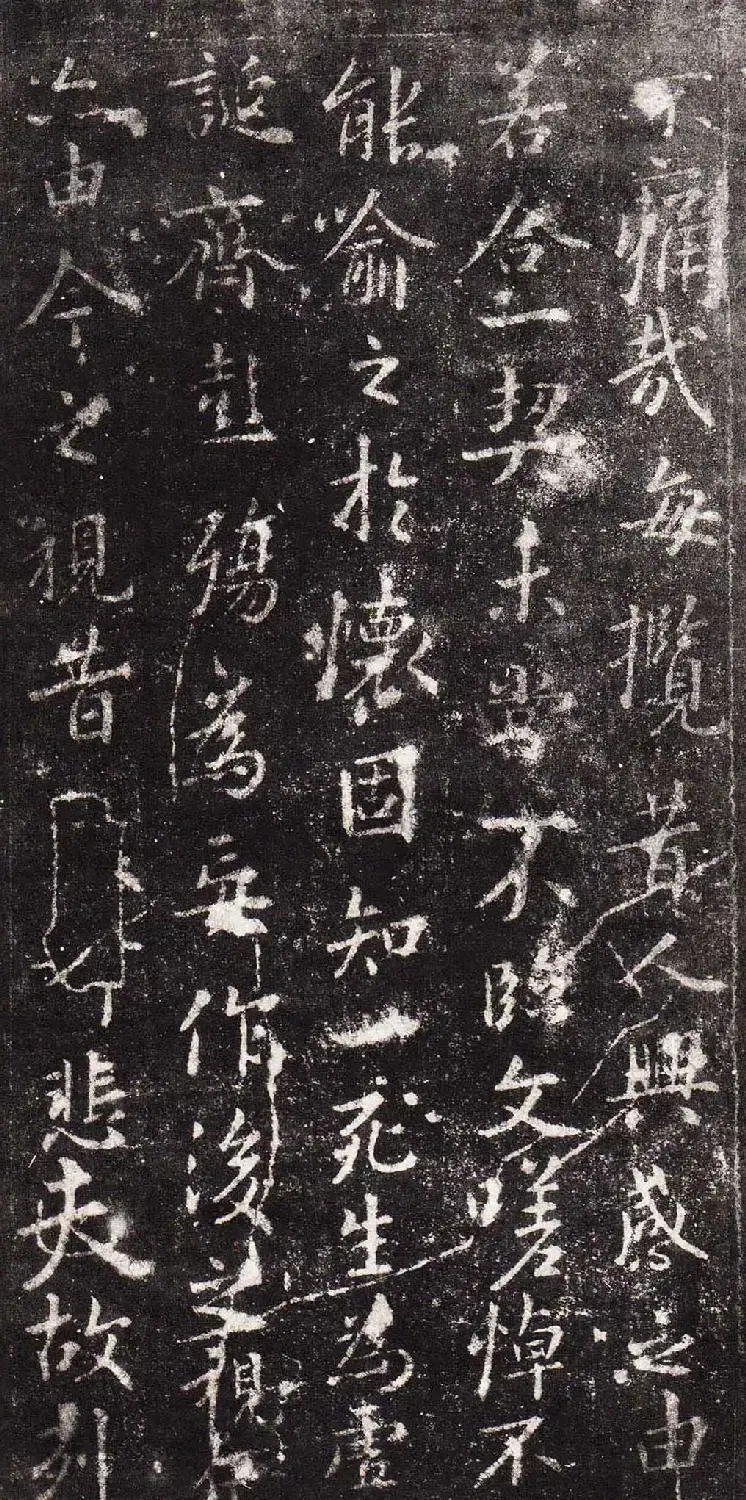 不痛哉每攬昔人興感之由
若合一契未嘗不臨文嗟悼不
能喻之於懷固知一死生為虛
誕齊彭殤為妄作後之視今
亦由今之視昔悲夫故列